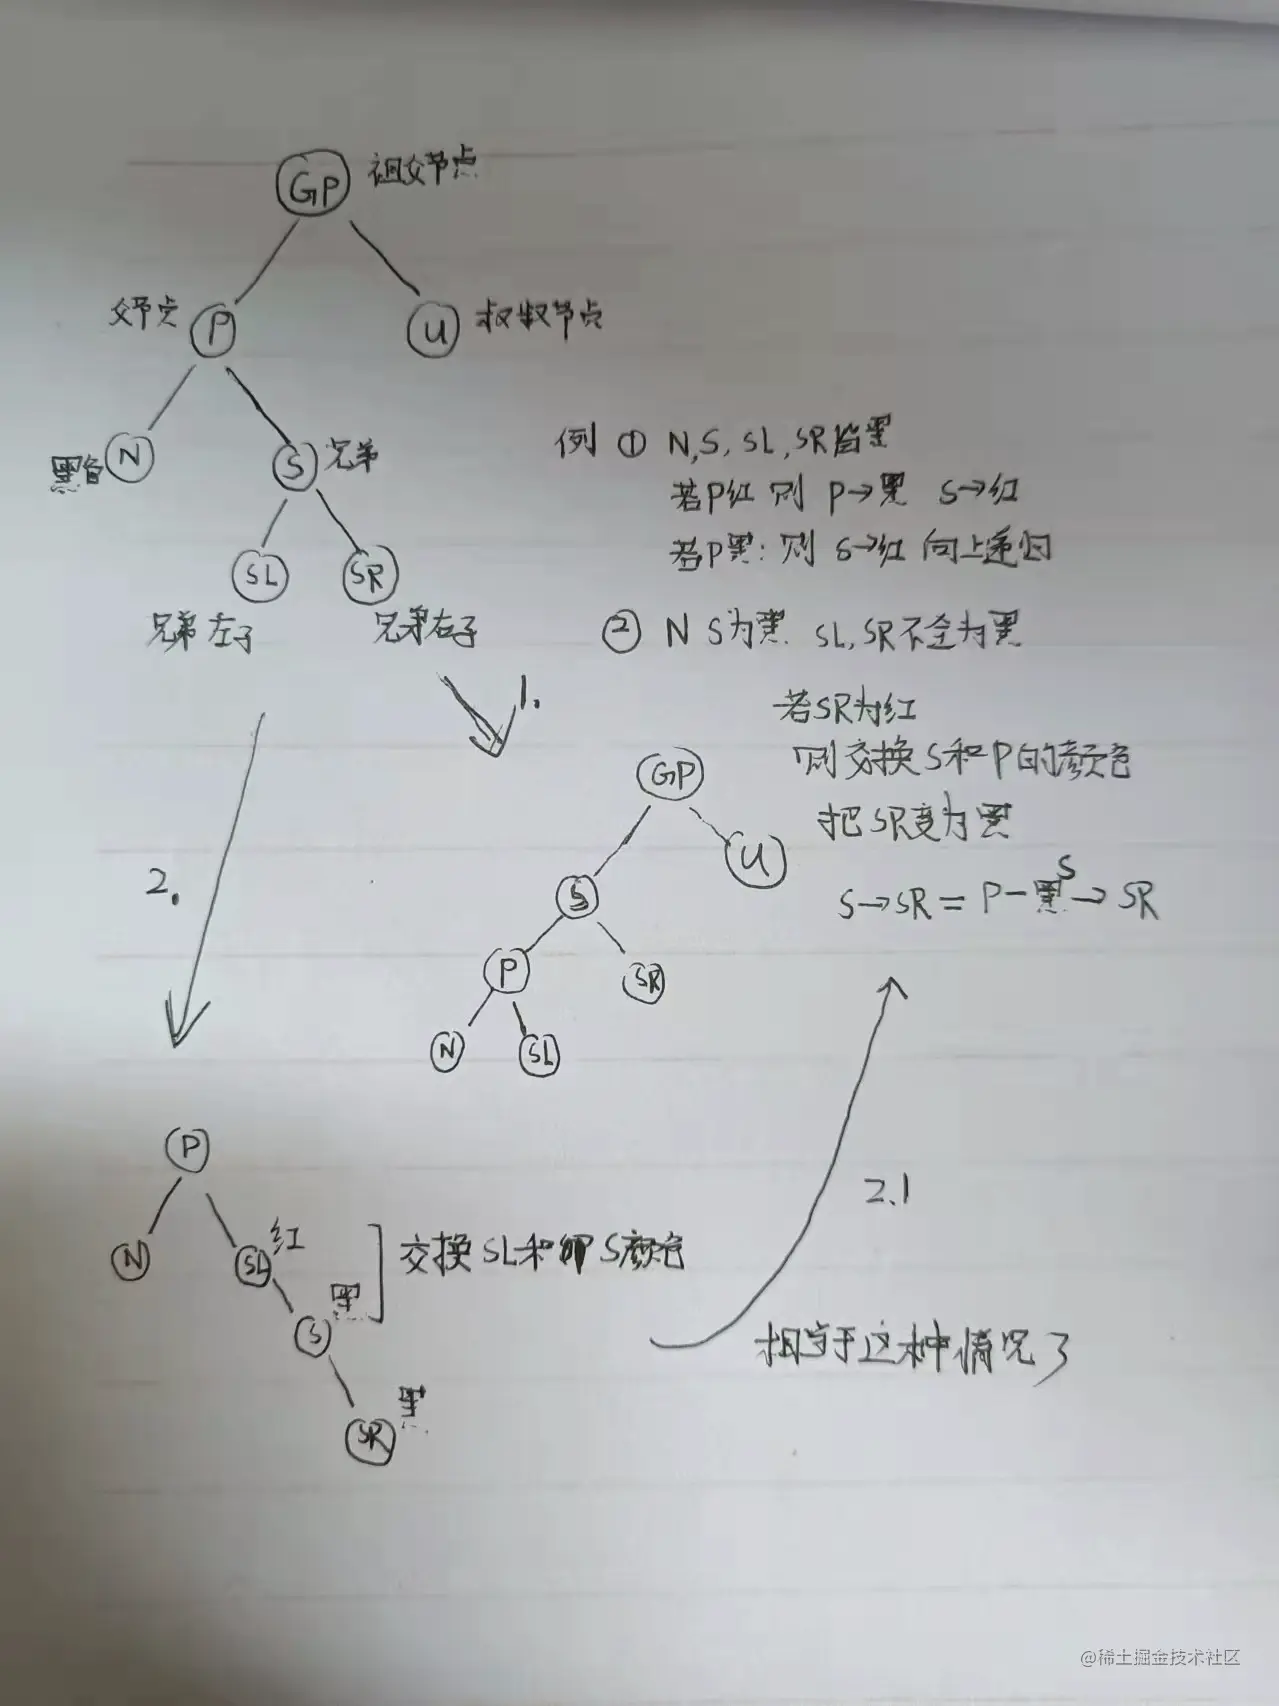 GP 祖父节点
父节点 P
U 叔叔节点
黑色 N
S 兄弟
SL
SR
兄弟左子
兄弟右子
例 ① N,S,SL,SR皆黑
若P红 则 P→黑 S→红
若P黑:则 S→红 向上递归
② N S为黑 SL,SR不全为黑
若SR为红
则交换S和P的颜色
把SR变为黑
S→SR = P-黑S→SR
1.
GP
U
S
P
SR
N
SL
2.
P
N
SL 红
S 黑
SR 黑
交换SL和S颜色
2.1
相当于这种情况了
@稀土掘金技术社区